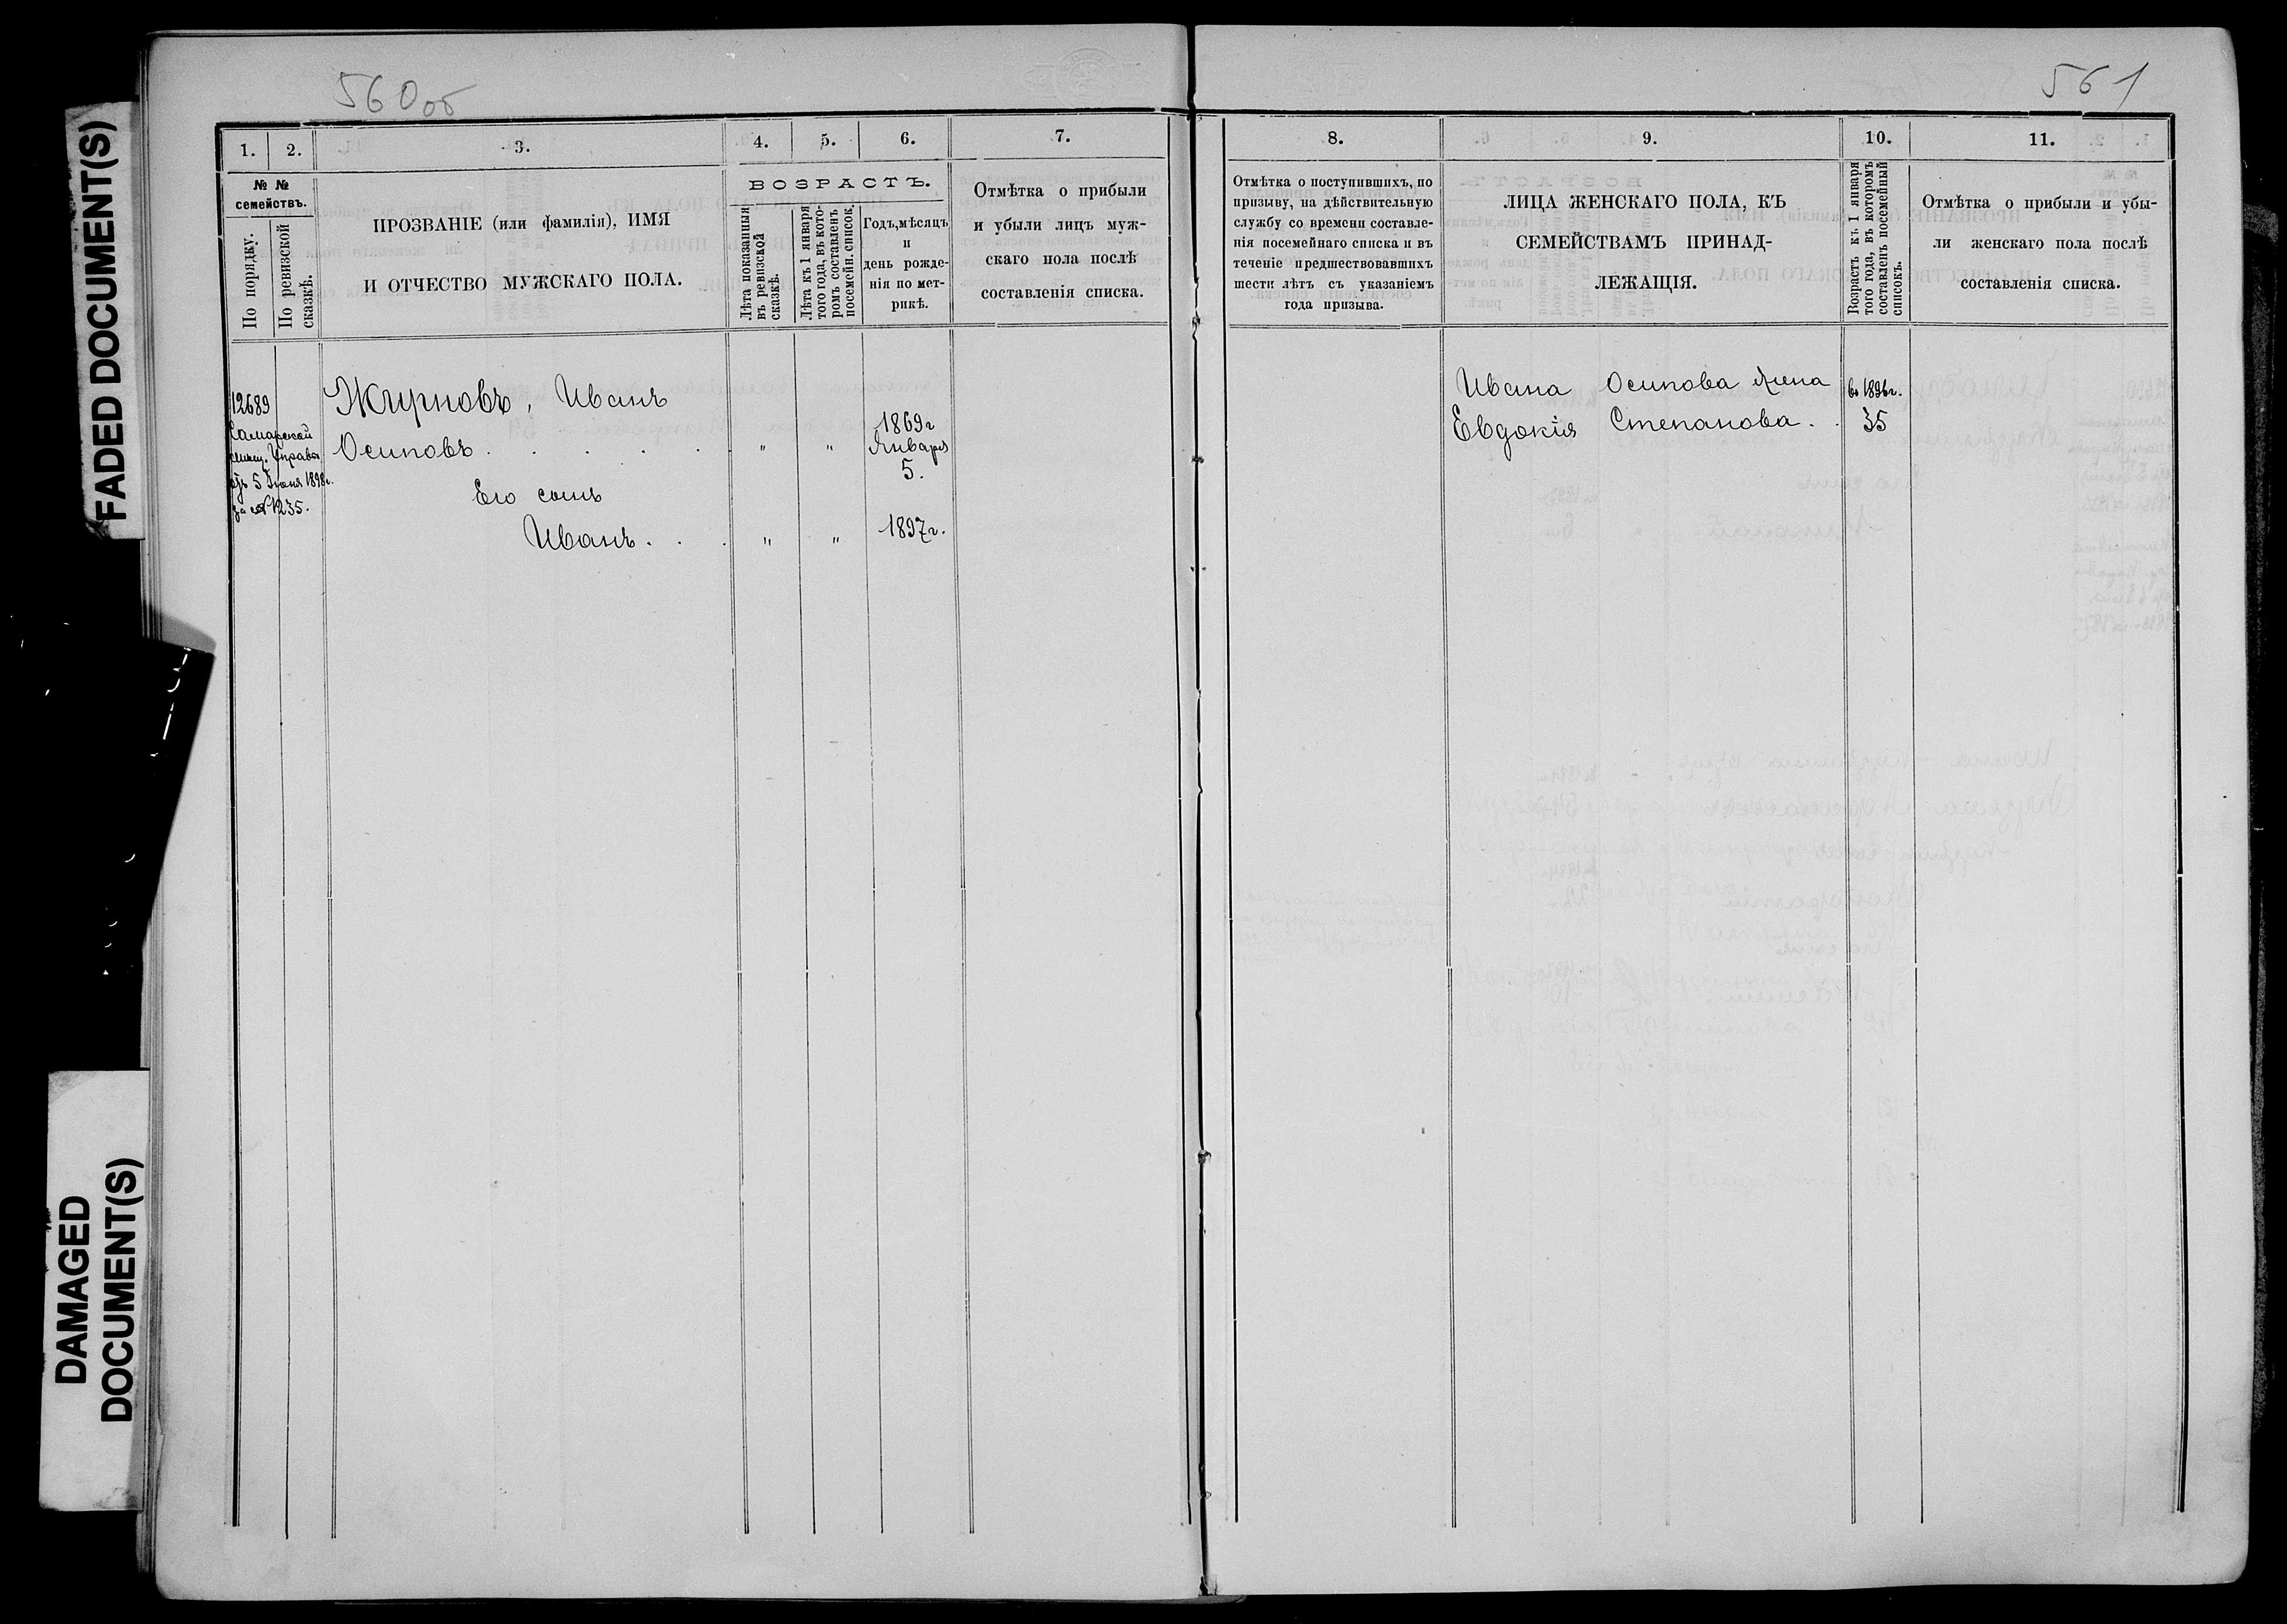 560 об
561
FADED DOCUMENT(S)
DAMAGED
DOCUMENT(S)
1.
2.
3.
4.
5.
6.
7.
№ №
семействъ.
По порядку.
По ревизской
сказкѣ.
ПРОЗВАНІЕ (или фамилія), ИМЯ
И ОТЧЕСТВО МУЖСКАГО ПОЛА.
ВОЗРАСТЪ.
Лѣта показанныя
въ ревизской
сказкѣ.
Лѣта къ 1 января
того года, въ кото-
ромъ составленъ
посемейн. списокъ.
Годъ, мѣсяцъ
и
день рожде-
нія по мет-
рикѣ.
Отмѣтка о прибыли
и убыли лицъ муж-
скаго пола послѣ
составленія списка.
12689
Самарской
мѣщ. Управы
отъ 5 Іюня 1898 г.
за № 1235.
Жирновъ, Иванъ
Осиповъ . . . . . " " 1869 г
Января
5.
Его сынъ
Иванъ . . . " " 1897 г.
8.
9.
10.
11.
Отмѣтка о поступившихъ, по
призыву, на дѣйствительную
службу со времени составле-
нія посемейнаго списка и въ
теченіе предшествовавшихъ
шести лѣтъ съ указаніемъ
года призыва.
ЛИЦА ЖЕНСКАГО ПОЛА, КЪ
СЕМЕЙСТВАМЪ ПРИНАД-
ЛЕЖАЩІЯ.
Возрастъ къ 1 января
того года, въ которомъ
составленъ посемейный
списокъ.
Отмѣтка о прибыли и убы-
ли женскаго пола послѣ
составленія списка.
Ивана Осипова жена въ 1896 г.
Евдокія Степанова . . 35